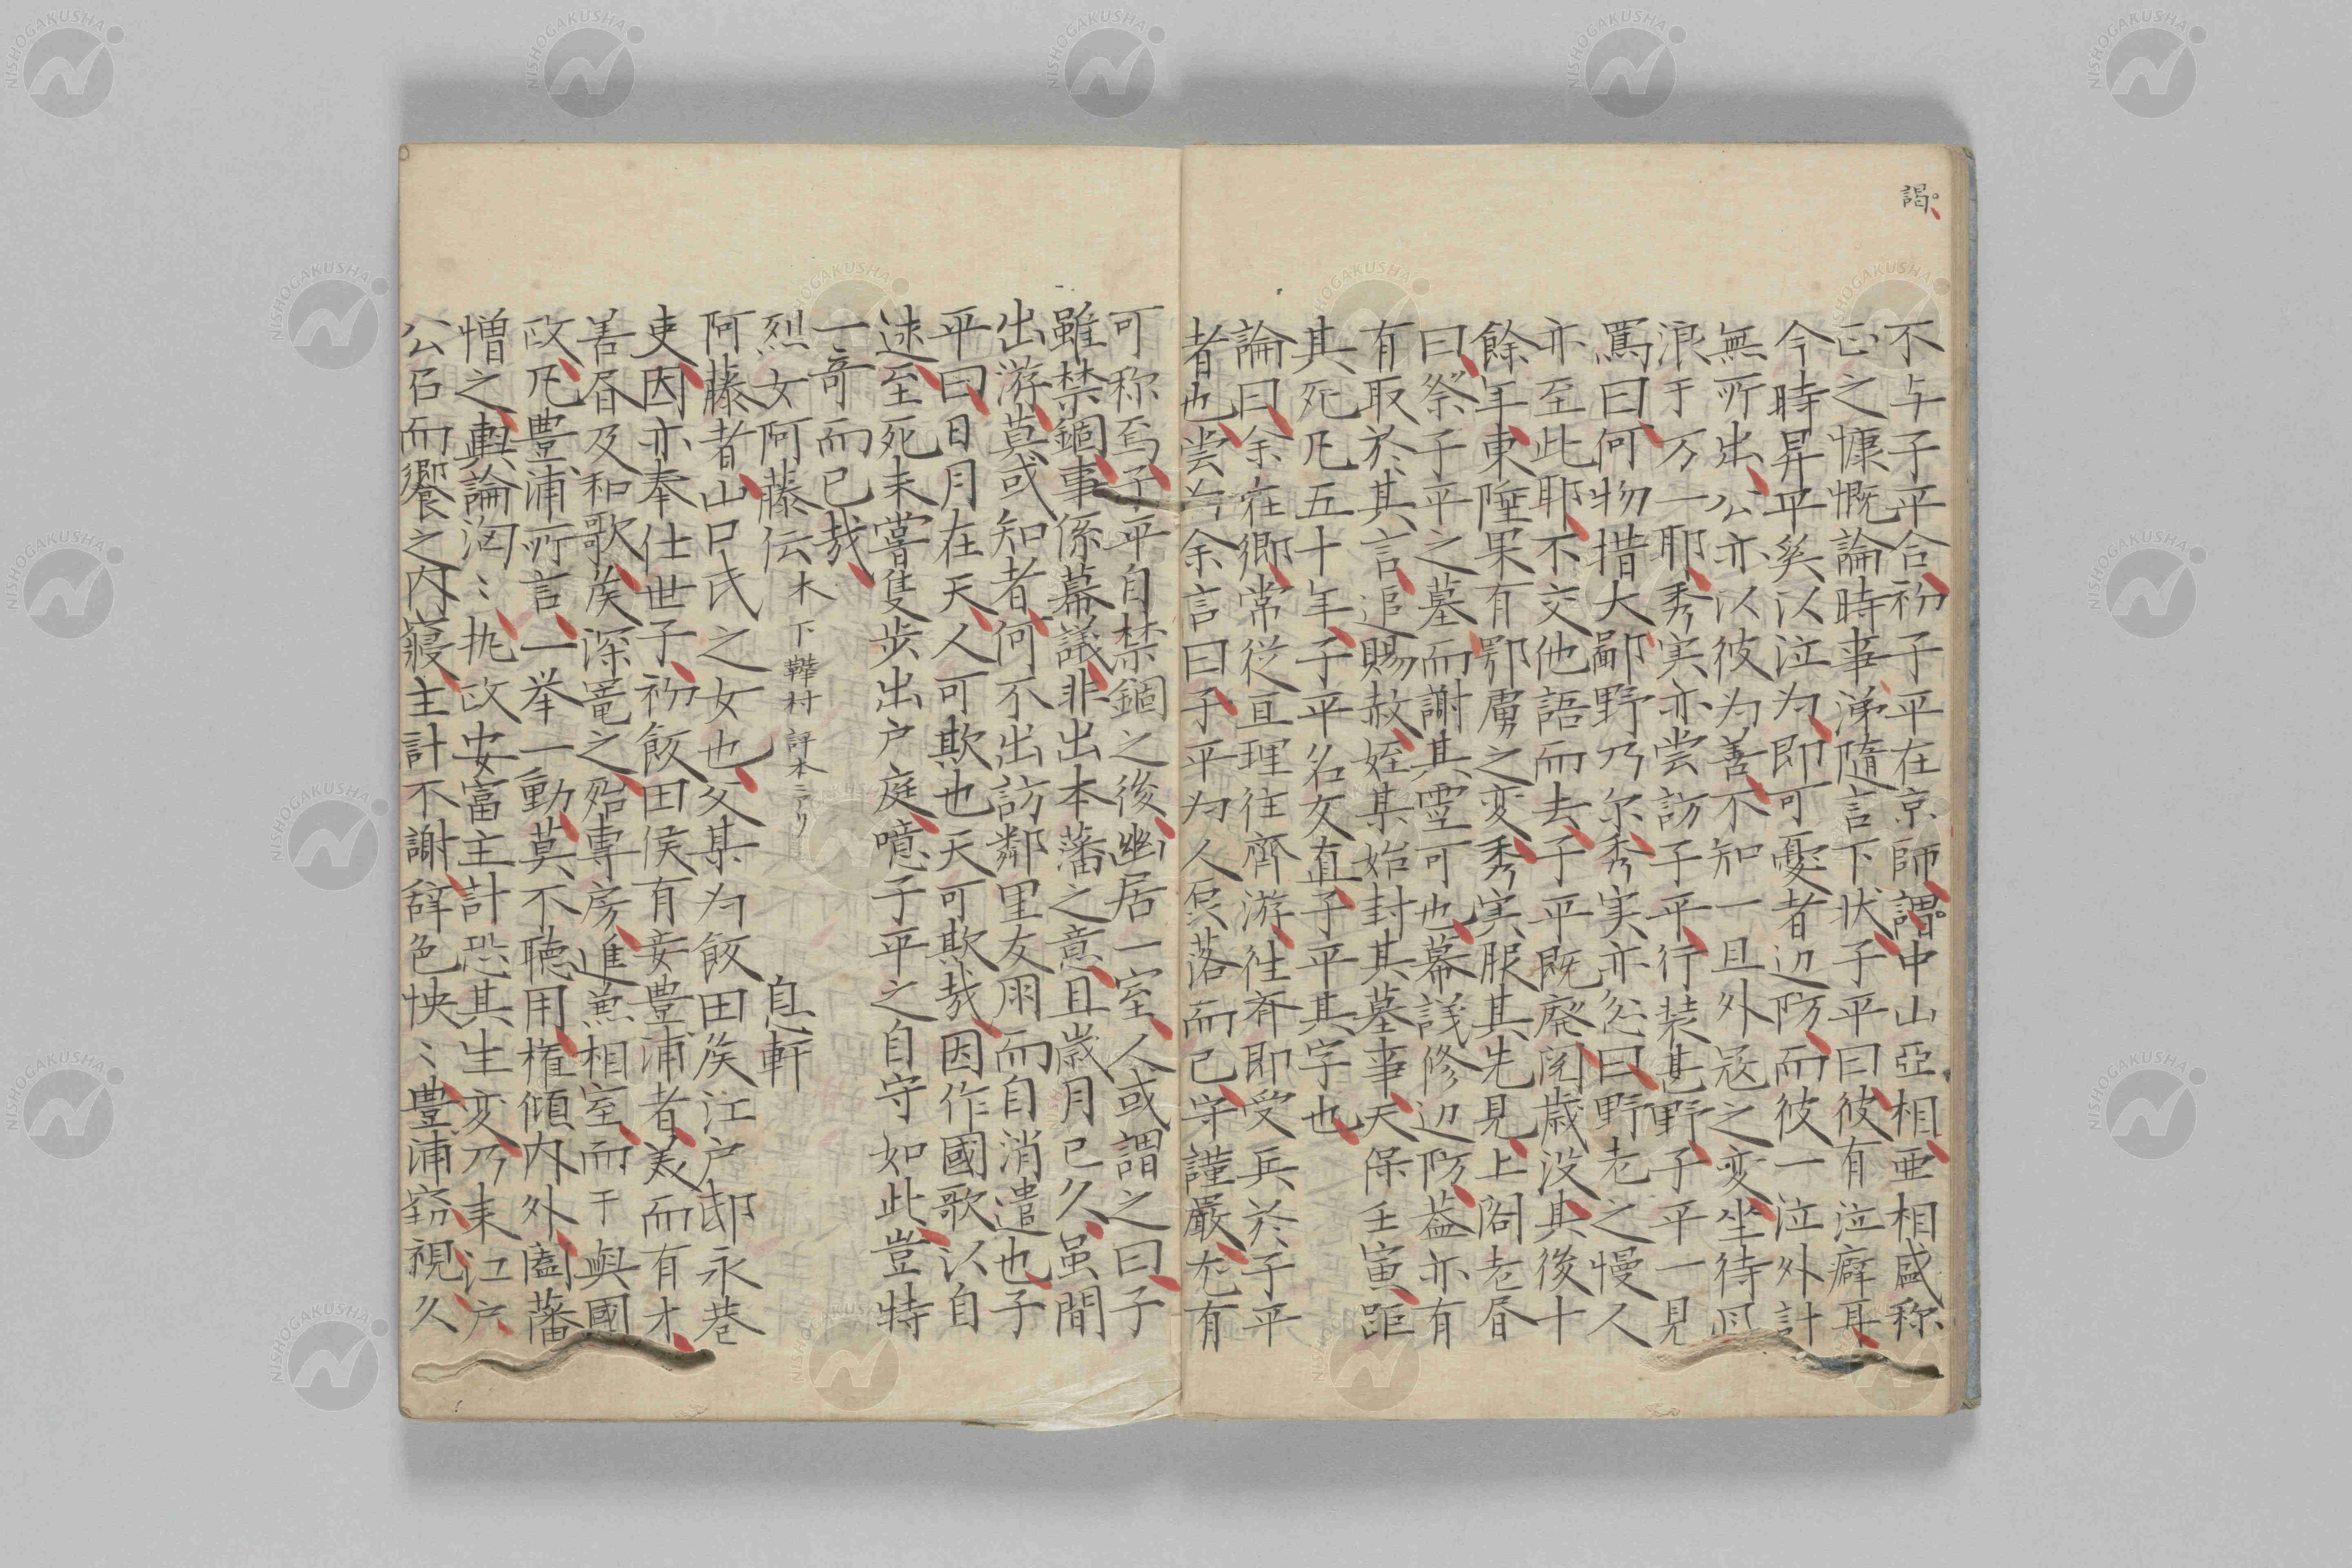 謁
不与子平合初子平在京師謂中山亞相亜相盛称
正之慷慨論時事涕隨言下状子平曰彼有泣癖耳
今時昇平奚以泣为即可憂者辺防而彼一泣外計
無所出公亦以彼为善不知一旦外寇之変坐待
浪于万一耶秀実亦尝訪子平行装甚野子平一見
罵曰何物措大鄙野乃尔秀実亦忿曰野老之慢人
亦至此耶不交他語而去子平既廃閲歳没其後十
餘年東陲果有鄂虜之変秀実服其先見上閤老书
曰祭子平之墓而謝其霊可也幕議修辺防葢亦有
有取於其言追賜赦姪某始封其墓事天保壬寅距
其死凡五十年子平名友直子平其字也
論曰余在郷常従亘理往齊游往斉即受兵於子平
者也尝为余言曰子平为人磊落而已守謹嚴尤有
可称焉子平自禁錮之後幽居一室人或謂之曰子
雖禁錮事係幕議非出本藩之意且歳月已久虽間
出游莫或知者何不出訪鄰里友朋而自消遣也子
平曰日月在天人可欺也天可欺哉因作國歌以自
述至死未嘗隻歩出戸庭噫子平之自守如此豈特
一奇而已哉
烈女阿藤伝 木下韡村評本ニアリ 息軒
阿藤者山口氏之女也父某为飯田侯江戸邸永巷
吏因亦奉仕世子初飯田侯有妾豊浦者美而有才
善書及和歌侯深寵之殆専房進無相室而于與國
政凡豊浦所言一挙一動莫不聴用権傾内外闔藩
憎之輿論洶〻執政安富主計恐其生変乃来江戸
公召而饗之内寝主計不謝辞色怏〻豊浦窃視久